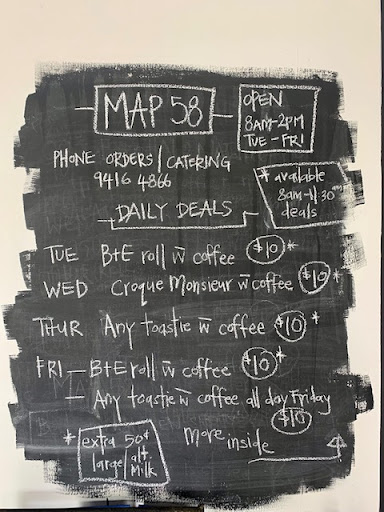 MAP 58
OPEN
8AM-2PM
TUE - FRI
PHONE ORDERS / CATERING
9416 4866
* available
8am-11:30am
deals
DAILY DEALS
TUE B+E roll w̄ coffee $10 *
WED Croque Monsieur w̄ coffee $10 *
THUR Any toastie w̄ coffee $10 *
FRI — B+E roll w̄ coffee $10 *
— Any toastie w̄ coffee all day Friday
$10
* extra 50¢
large / alt.
Milk
More inside